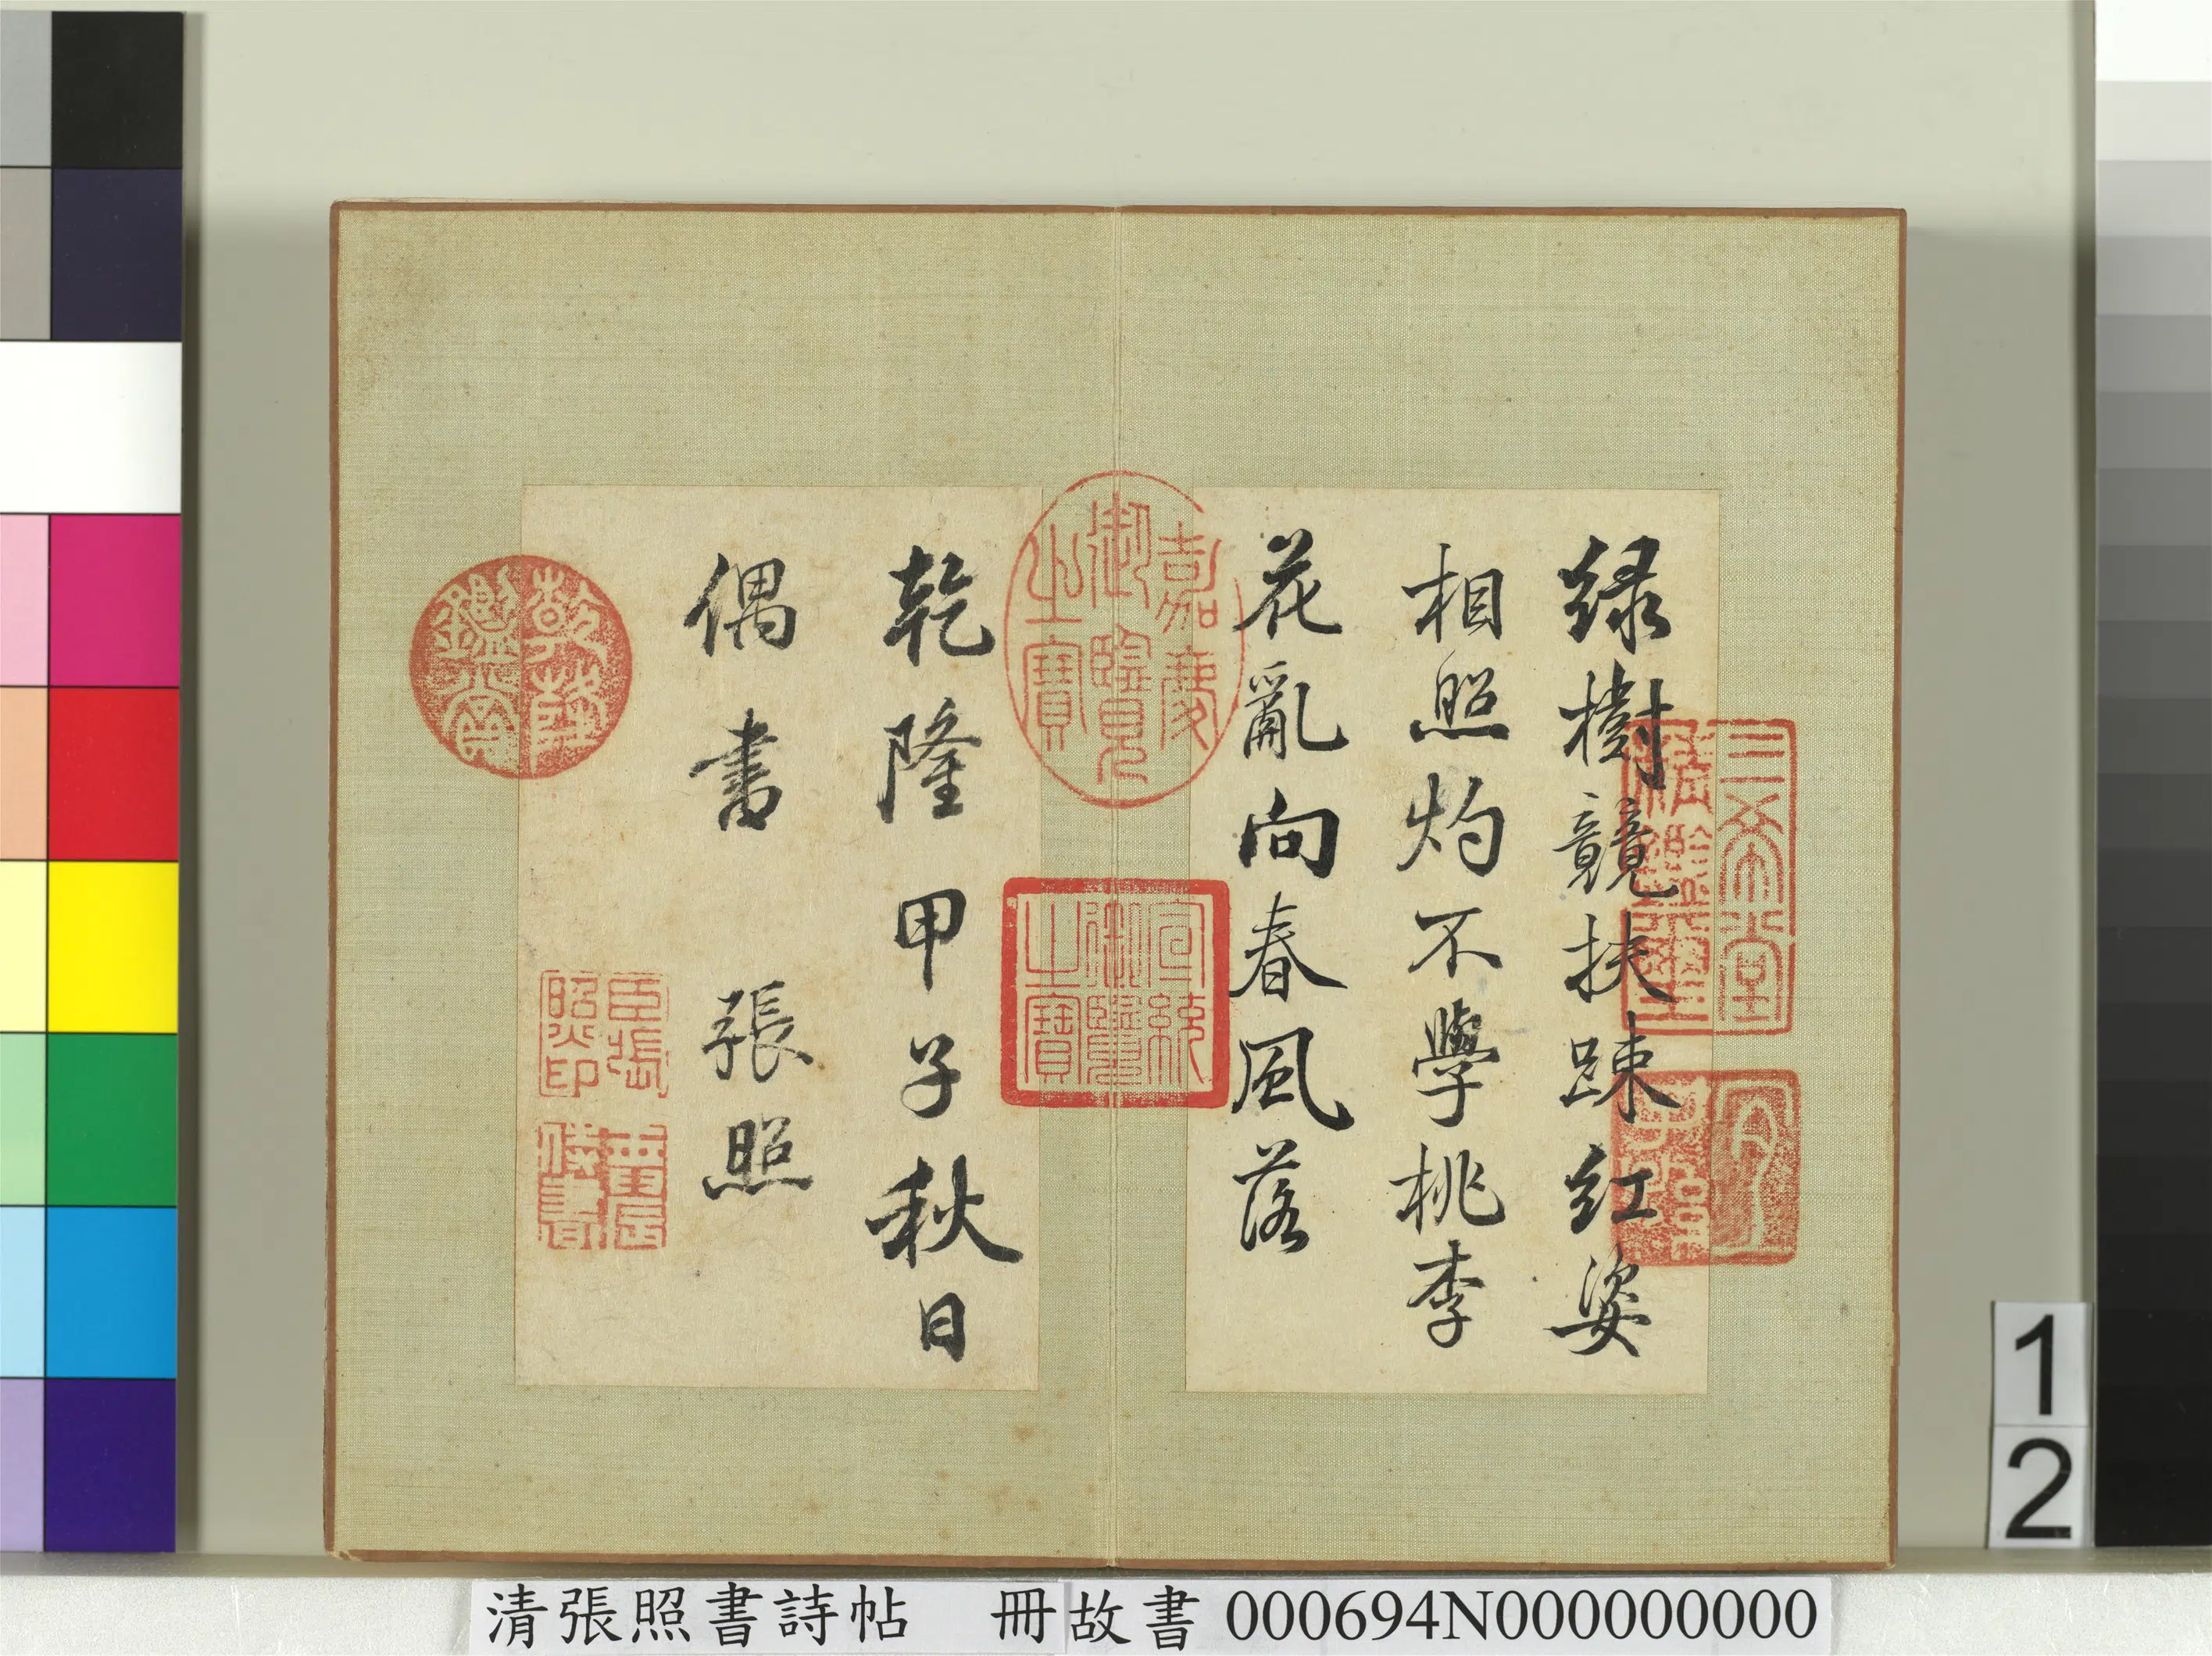 綠樹競扶踈紅姿
相照灼不學桃李
花亂向春風落
乾隆甲子秋日
偶書 張照
三希堂精鑑璽
宜子孫
嘉慶御覽之寶
宣統御覽之寶
乾隆鑑賞
臣張照印
1
2
清張照書詩帖 冊故書 000694N000000000